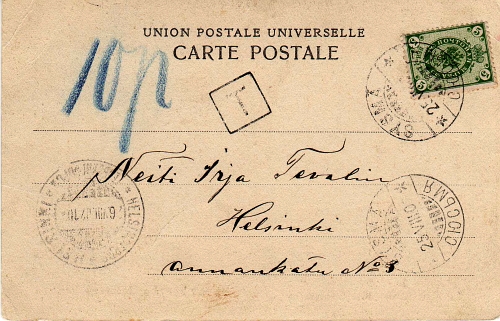 UNION POSTALE UNIVERSELLE
CARTE POSTALE
10p
T
5 5
SYSMÄ
Neiti Irja Tevalin
Helsinki
Annankatu No 3
СЮСЬМЯ
25 VII